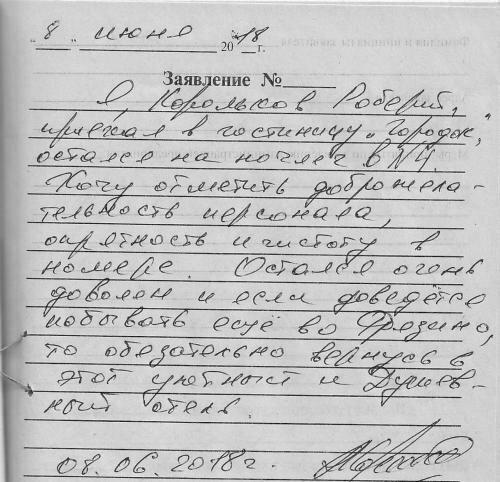 "8" июня 2018 г.
Заявление №
Я, Корольков Роберт,
приехал в гостиницу „Городок",
остался на ночлег в №4.
Хочу отметить доброжела-
тельность персонала,
опрятность и чистоту в
номере. Остался очень
доволен и если доведётся
побывать ещё во Фрязино,
то обязательно вернусь в
этот уютный и душев-
ный отель.
08.06.2018г.